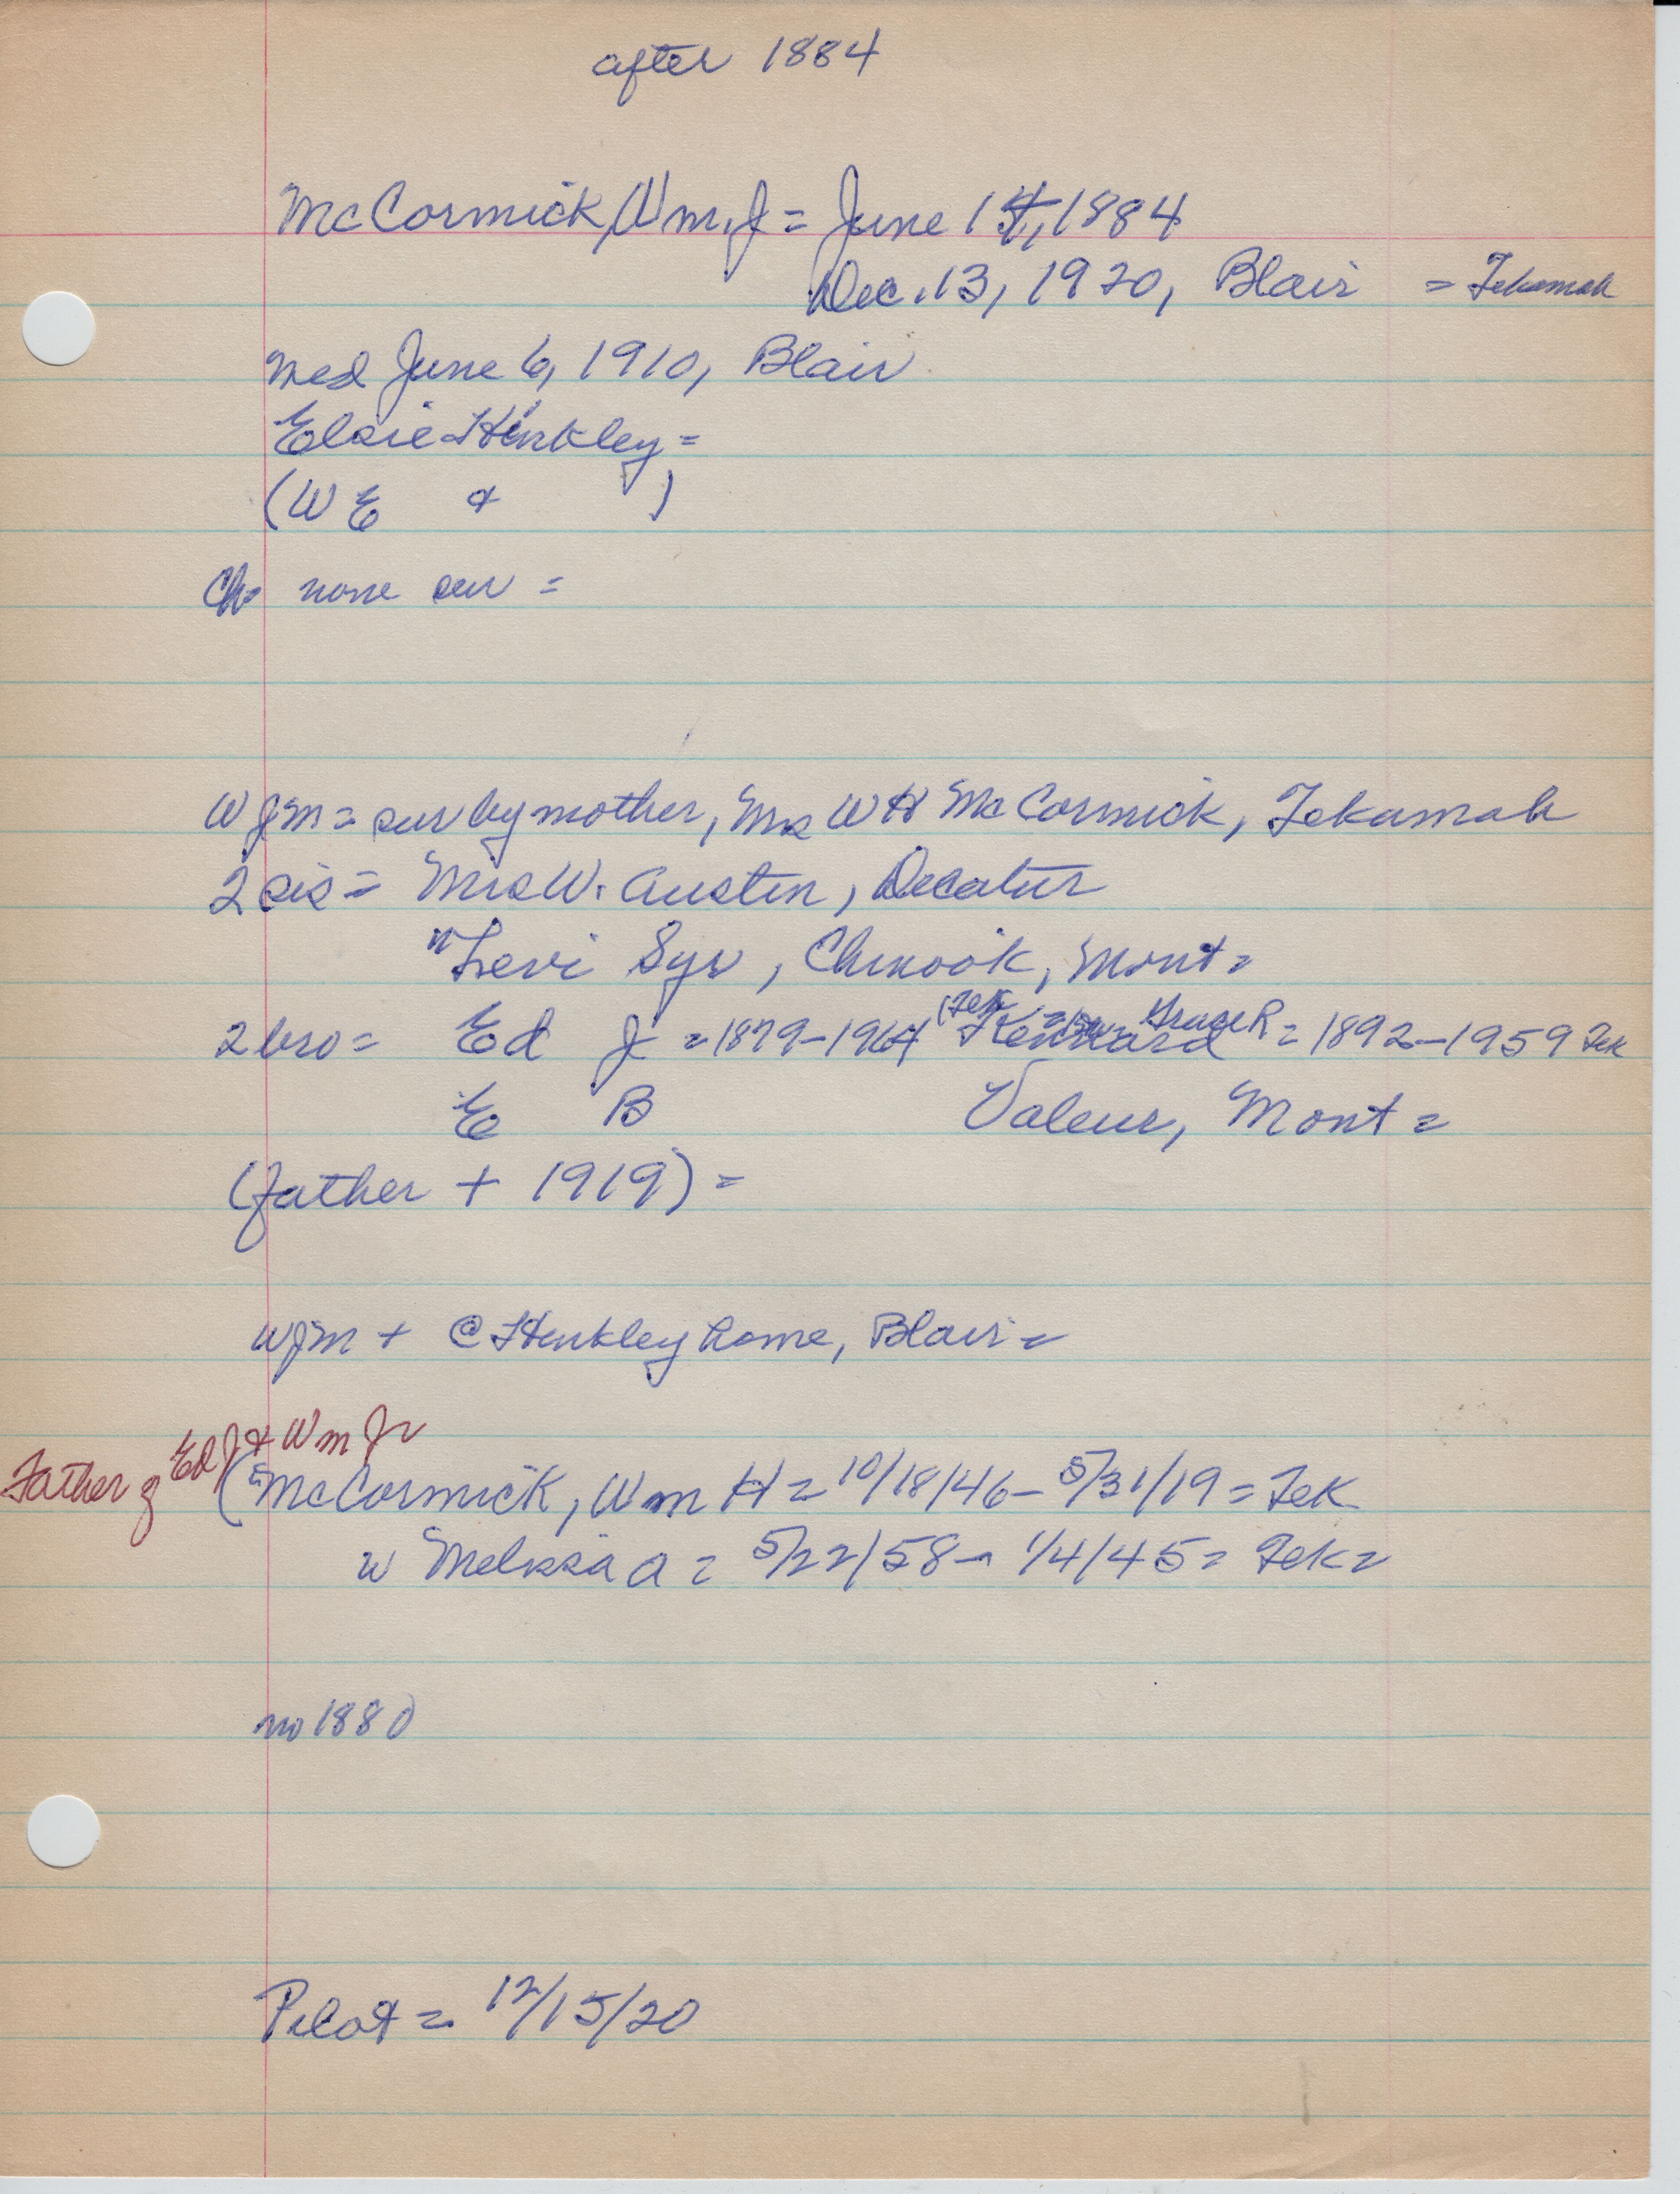 after 1884
McCormick, Wm. J = June 14, 1884
Dec. 13, 1920, Blair = Tekamah
med June 6, 1910, Blair
Elsie Hinkley =
(W E & )
Ch = none sur =
W J M = sur by mother, Mrs W H McCormick, Tekamah
2 sis = Mrs W. Austin, Decatur
" Levi Syr, Chinook, Mont =
2 bro = Ed J = 1879-1964 (Tek = Kennard Grace R = 1892-1959 Tek
E B Valeur, Mont =
(father + 1919) =
W J M + @ Hinkley home, Blair =
Father of Ed J & Wm Jr
(McCormick, Wm H = 10/18/46 - 5/31/19 = Tek
w Melissa A = 5/22/58 - 1/4/45 = Tek =
no 1880
Pilot = 12/15/20